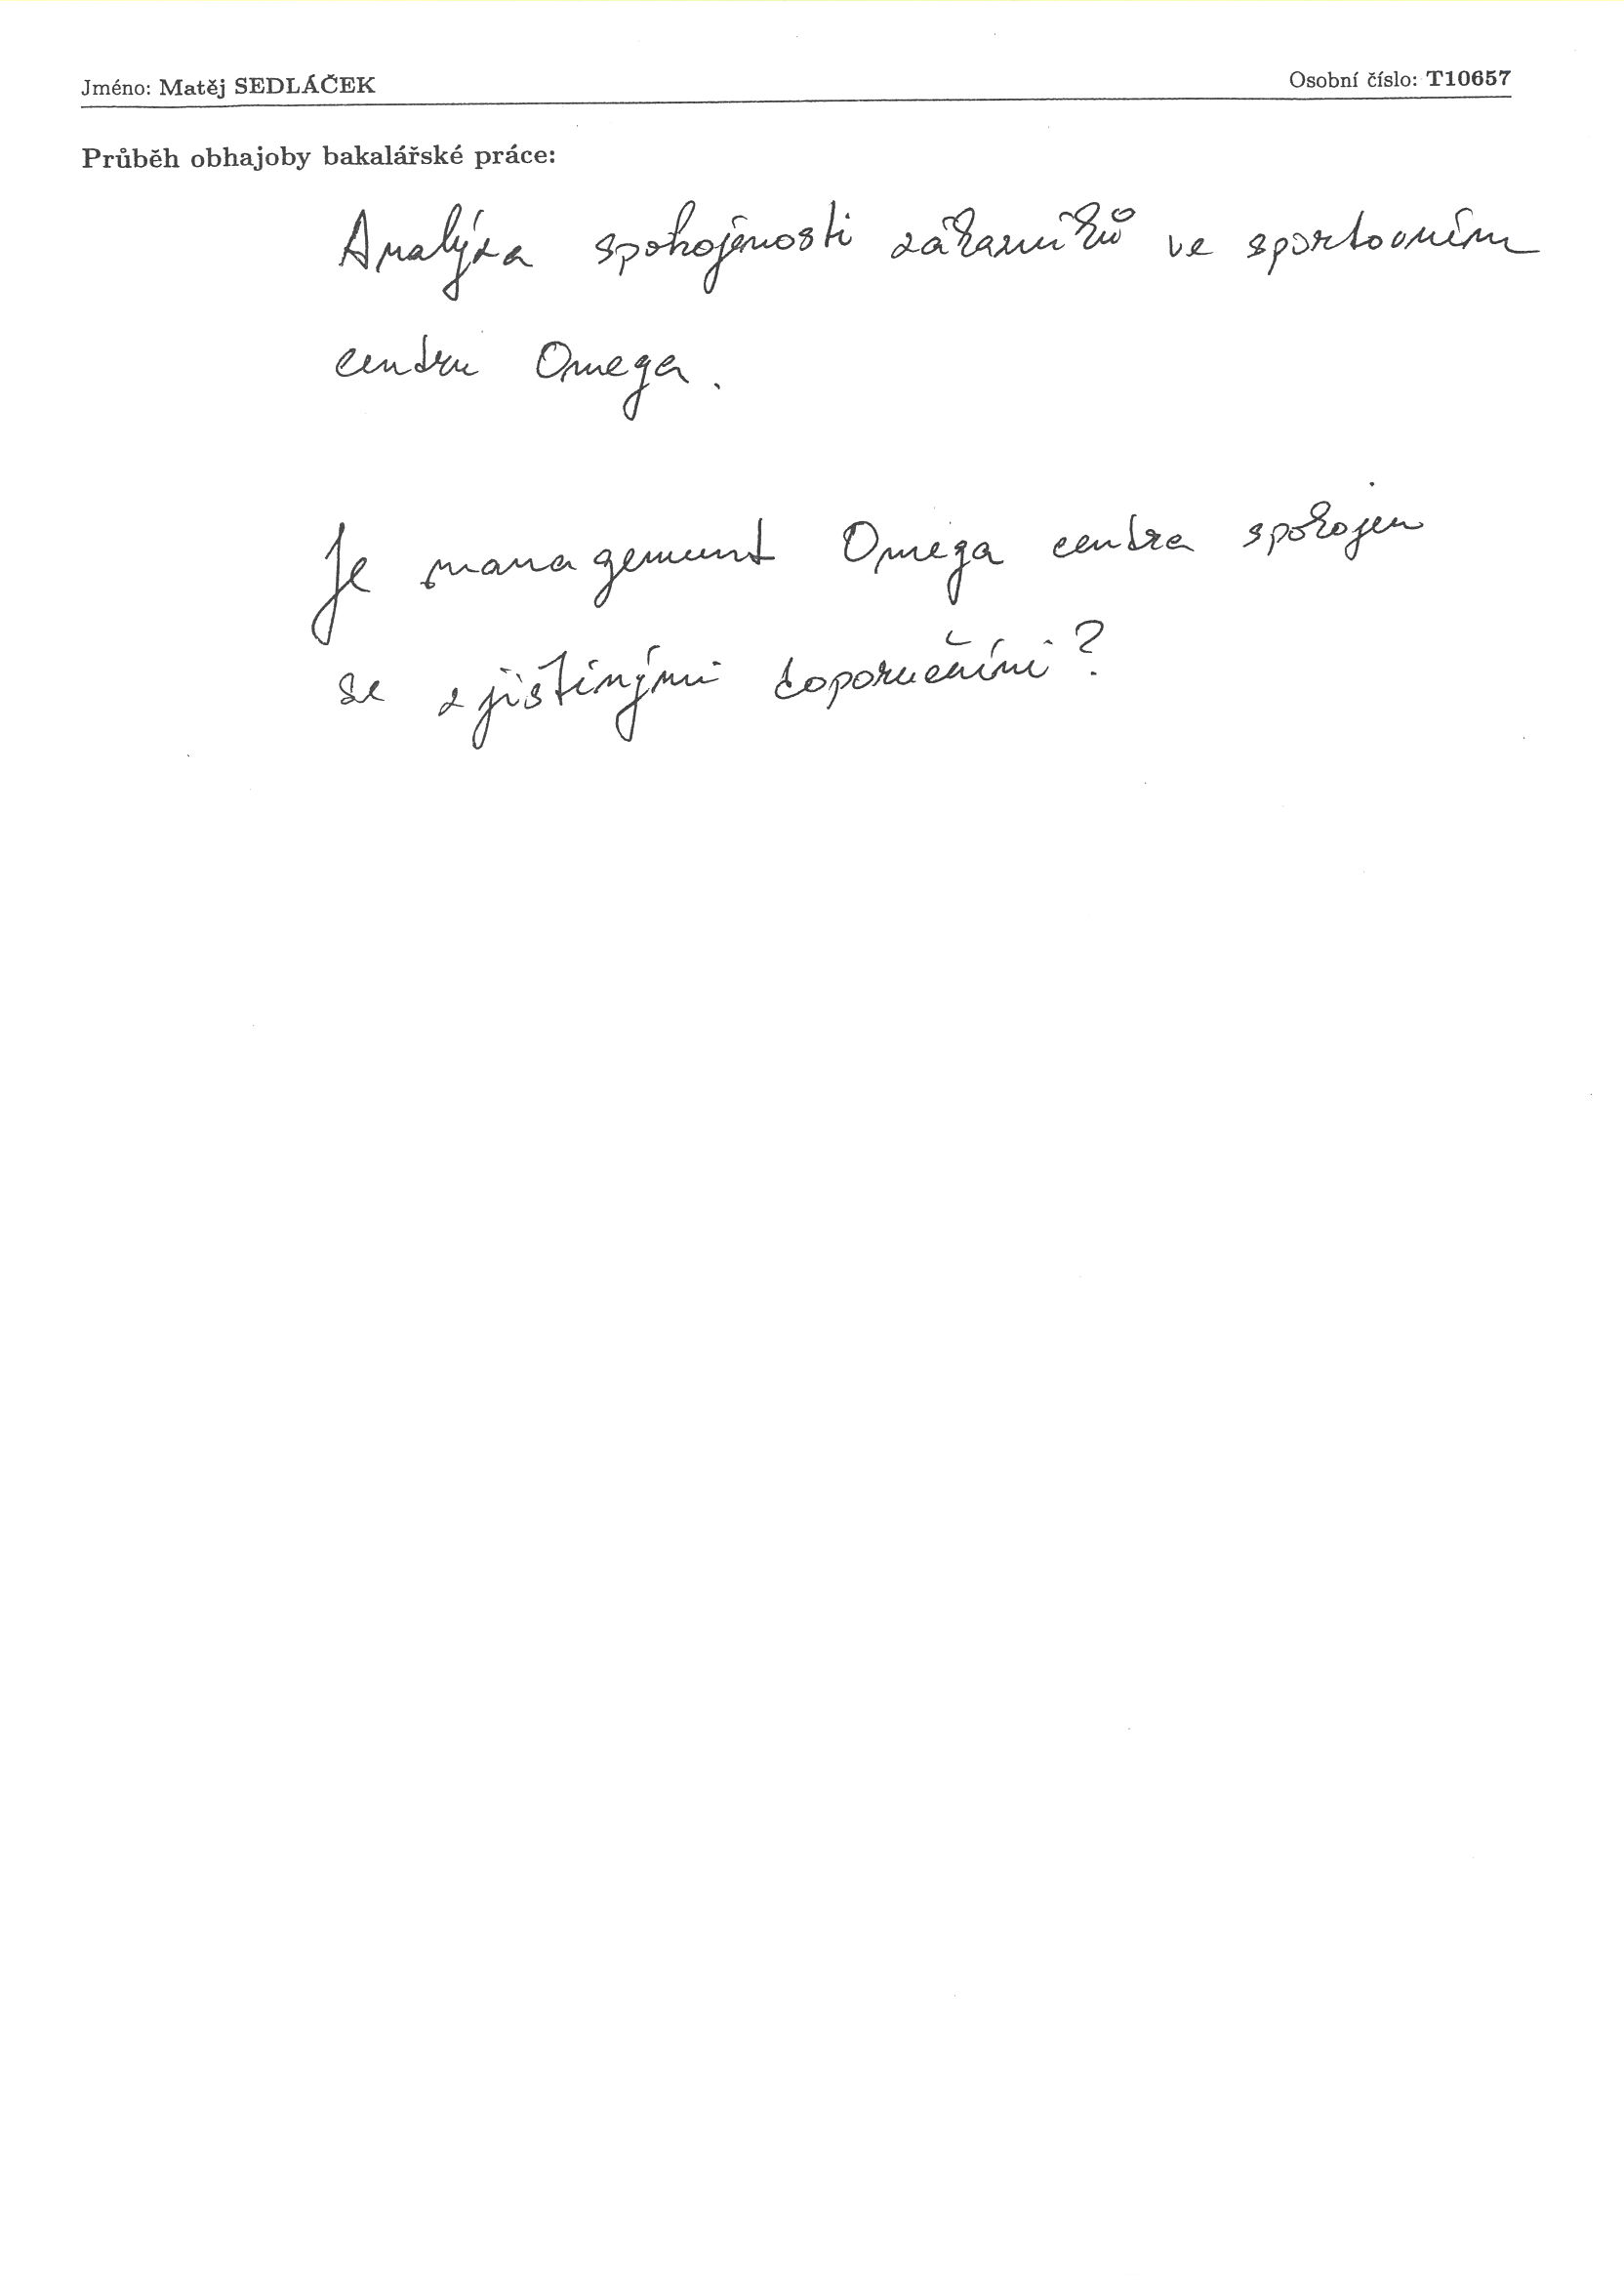 Jméno: Matěj SEDLÁČEK Osobní číslo: T10657
Průběh obhajoby bakalářské práce:
Analýza spokojenosti zákazníků ve sportovním
centru Omega.
Je management Omega centra spokojen
se zjištěnými doporučeními?